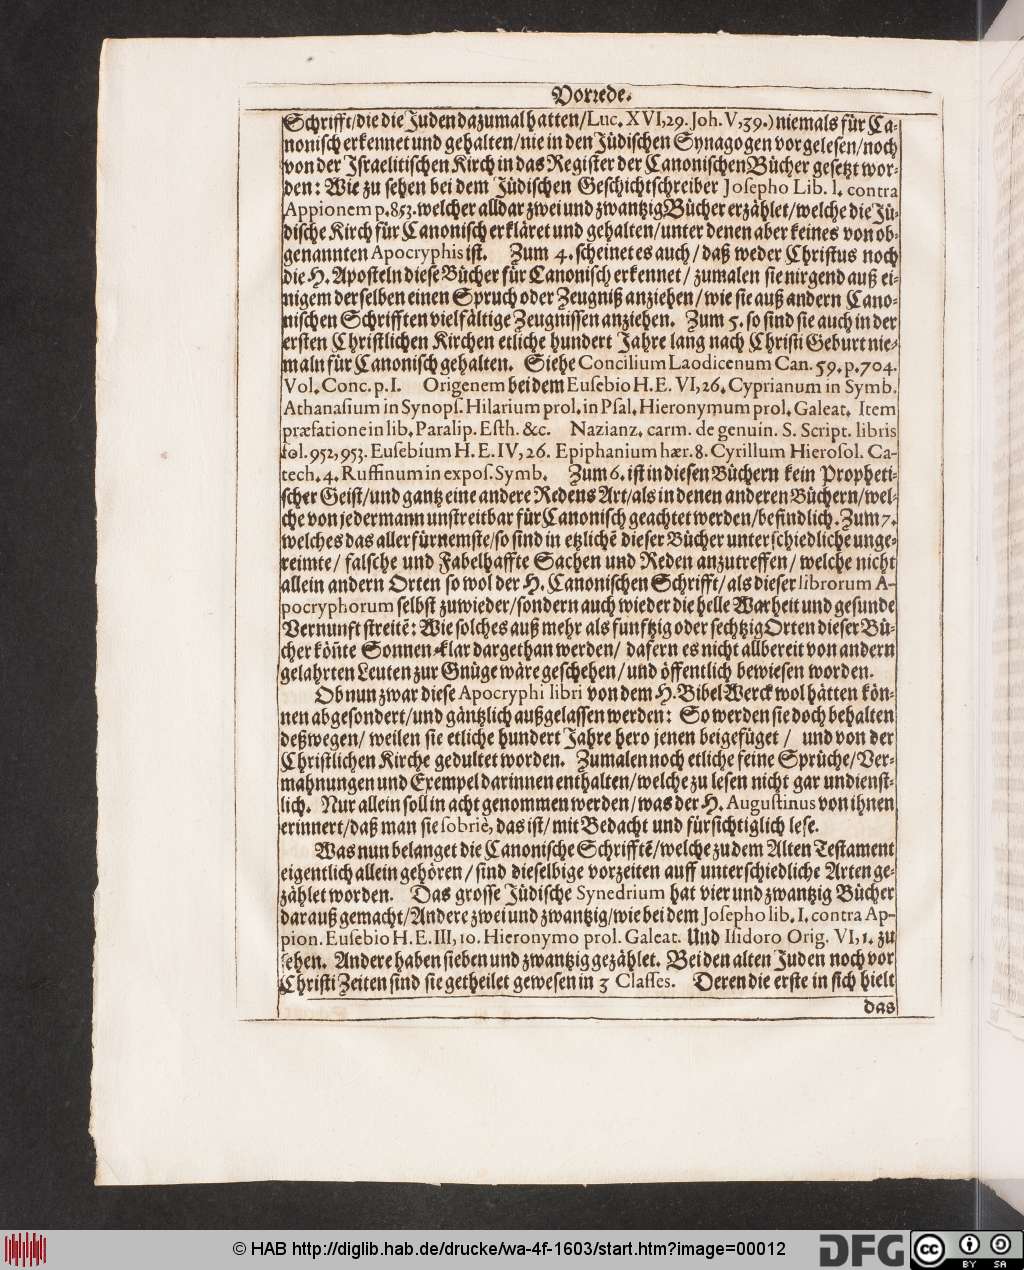 Vorrede.
Schrifft/die die Juden dazumal hatten/Luc. XVI,29. Joh. V,39.) niemals für Ca-
nonisch erkennet und gehalten/nie in den Jüdischen Synagogen vorgelesen/noch
von der Israelitischen Kirch in das Register der Canonischen Bücher gesetzt wor-
den: Wie zu sehen bei dem Jüdischen Geschichtschreiber Josepho Lib. l. contra
Appionem p.853. welcher alldar zwei und zwantzig Bücher erzählet/welche die Jü-
dische Kirch für Canonisch erkläret und gehalten/unter denen aber keines von ob-
genannten Apocryphis ist. Zum 4. scheinet es auch/daß weder Christus noch
die H. Aposteln diese Bücher für Canonisch erkennet/zumalen sie nirgend auß ei-
nigem derselben einen Spruch oder Zeugniß anziehen/wie sie auß andern Cano-
nischen Schrifften vielfältige Zeugnissen anziehen. Zum 5. so sind sie auch in der
ersten Christlichen Kirchen etliche hundert Jahre lang nach Christi Geburt nie-
maln für Canonisch gehalten. Siehe Concilium Laodicenum Can. 59. p.704.
Vol. Conc. p. I. Origenem bei dem Eusebio H. E. VI,26. Cyprianum in Symb.
Athanasium in Synops. Hilarium prol. in Psal. Hieronymum prol. Galeat. Item
præfatione in lib. Paralip. Esth. &c. Nazianz. carm. de genuin. S. Script. libris
fol. 952,953. Eusebium H. E. IV, 26. Epiphanium hær. 8. Cyrillum Hierosol. Ca-
tech. 4. Ruffinum in expos. Symb. Zum 6. ist in diesen Büchern kein Propheti-
scher Geist/und gantz eine andere Redens Art/als in denen anderen Büchern/wel-
che von jedermann unstreitbar für Canonisch geachtet werden/befindlich. Zum 7.
welches das allerfürnemste/so sind in etzlichē dieser Bücher unterschiedliche unge-
reimte/ falsche und Fabelhaffte Sachen und Reden anzutreffen/ welche nicht
allein andern Orten so wol der H. Canonischen Schrifft/als dieser librorum A-
pocryphorum selbst zuwieder/sondern auch wieder die helle Warheit und gesunde
Vernunft streitē: Wie solches auß mehr als funftzig oder sechtzig Orten dieser Bü-
cher kön̄te Sonnen-klar dargethan werden/ dafern es nicht allbereit von andern
gelahrten Leuten zur Gnüge wäre geschehen/ und öffentlich bewiesen worden.
Ob nun zwar diese Apocryphi libri von dem H. Bibel Werck wol hätten kön-
nen abgesondert/und gäntzlich außgelassen werden: So werden sie doch behalten
deßwegen/ weilen sie etliche hundert Jahre hero jenen beigefüget / und von der
Christlichen Kirche gedultet worden. Zumalen noch etliche feine Sprüche/Ver-
mahnungen und Exempel darinnen enthalten/welche zu lesen nicht gar undienst-
lich. Nur allein soll in acht genommen werden/was der H. Augustinus von ihnen
erinnert/daß man sie sobriè, das ist/ mit Bedacht und fürsichtiglich lese.
Was nun belanget die Canonische Schrifftē/welche zu dem Alten Testament
eigentlich allein gehören/ sind dieselbige vorzeiten auff unterschiedliche Arten ge-
zählet worden. Das grosse Jüdische Synedrium hat vier und zwantzig Bücher
darauß gemacht/Andere zwei und zwantzig/wie bei dem Josepho lib. I. contra Ap-
pion. Eusebio H. E. III, 10. Hieronymo prol. Galeat. Und Isidoro Orig. VI, 1. zu
sehen. Andere haben sieben und zwantzig gezählet. Bei den alten Juden noch vor
Christi Zeiten sind sie getheilet gewesen in 3 Classes. Deren die erste in sich hielt
das
© HAB http://diglib.hab.de/drucke/wa-4f-1603/start.htm?image=00012
DFG cc BY SA